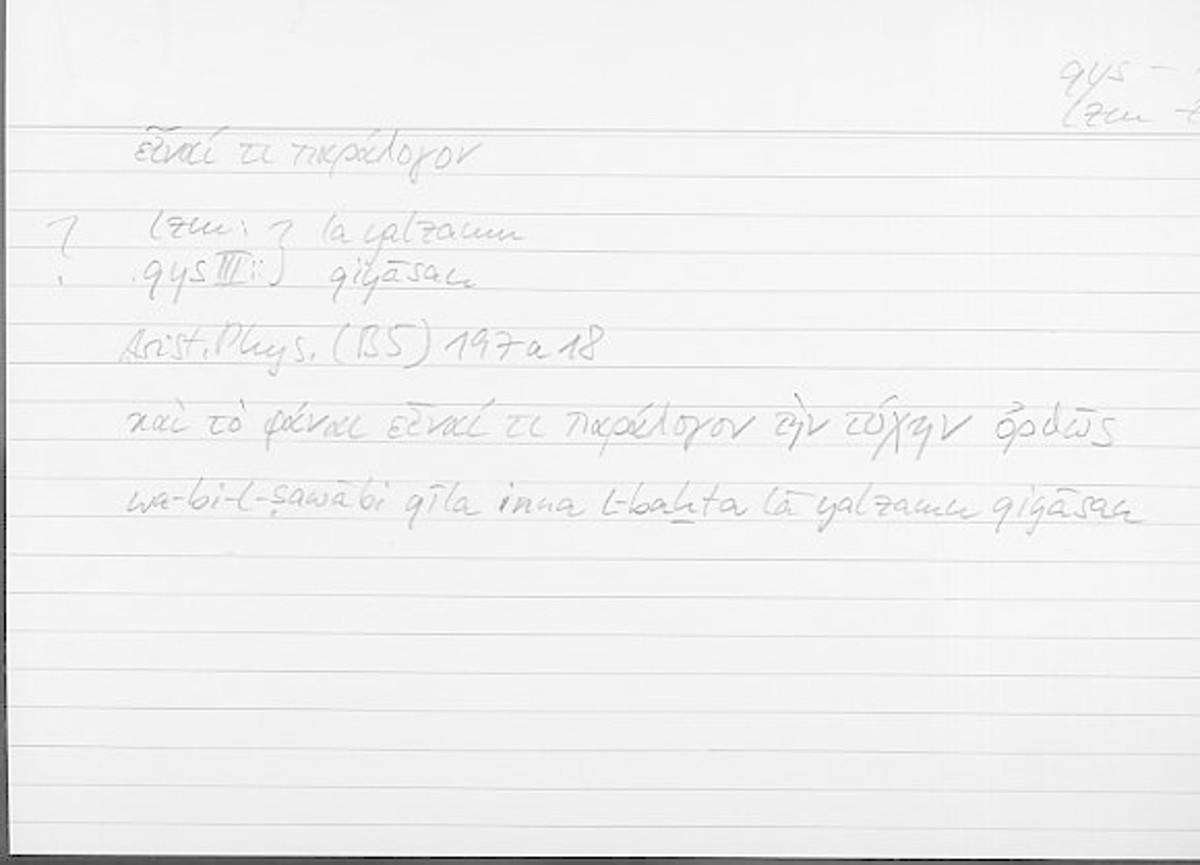 qys –
lzm –
εἶναί τι παράλογον
? lzm: } lā yalzamu
qys III: } qiyāsan
Arist. Phys. (B5) 197a18
καὶ τὸ φάναι εἶναί τι παράλογον τὴν τύχην ὀρθῶς
wa-bi-l-ṣawābi qīla inna l-baḫta lā yalzamu qiyāsan